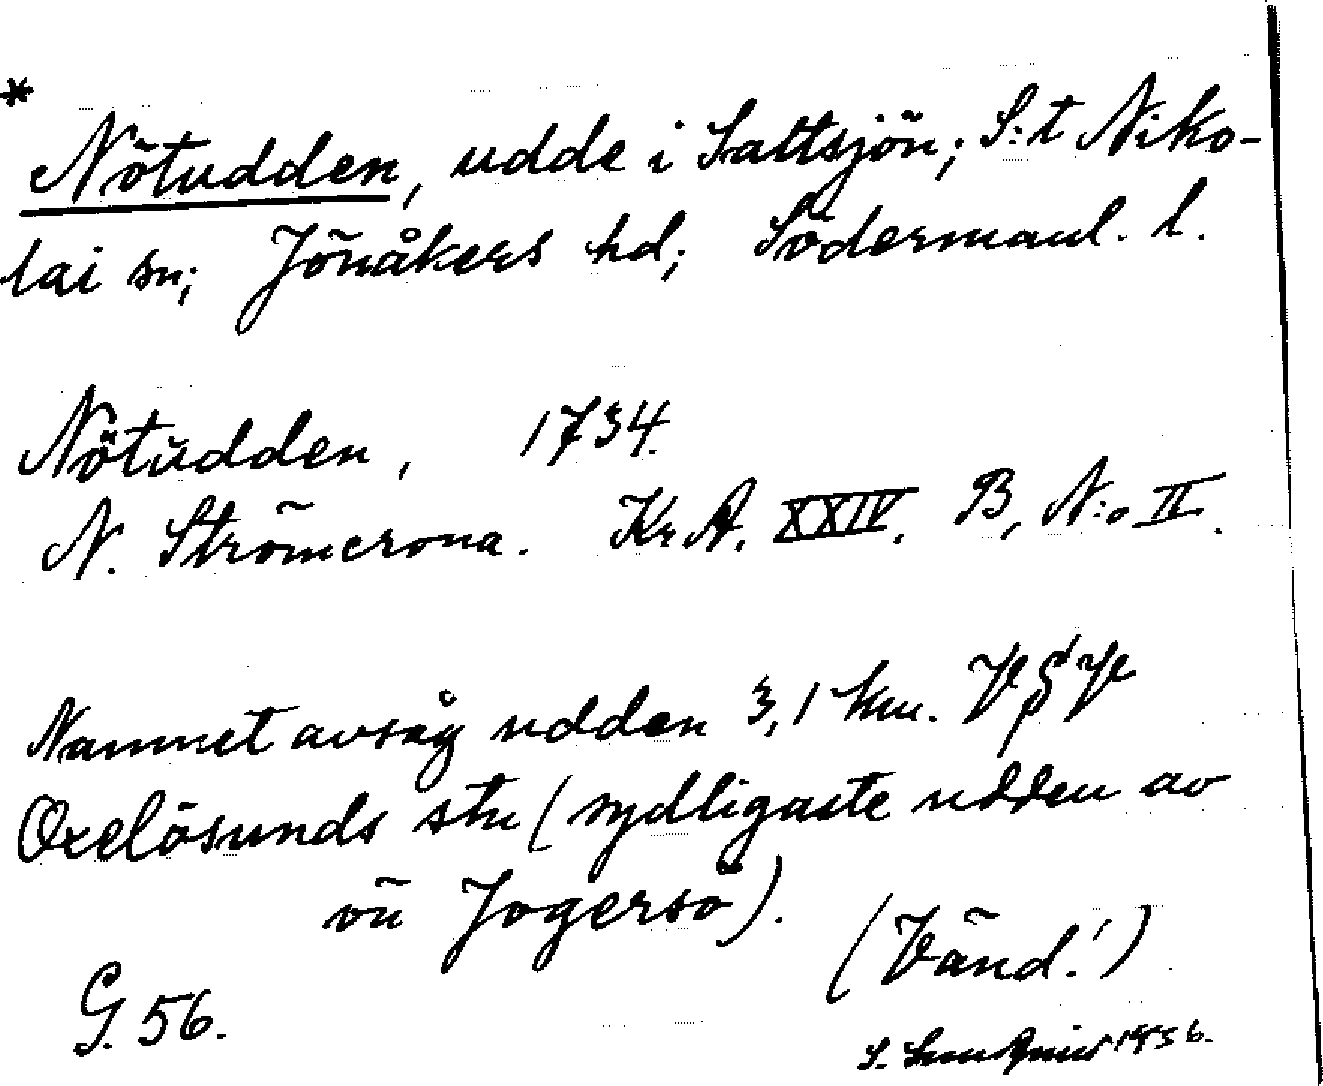 *
Nötudden, udde i Saltsjön; S:t Niko-
lai sn; Jönåkers hd; Södermanl. l.
Nötudden, 1734.
N. Strömcrona. Kr. A. XXIV. B, N:o II.
Namnet avsåg udden 3,1 km. VSV
Oxelösunds stn (sydligaste udden av
ön Jogersö).
(Vänd!)
G. 56.
S. 1956.